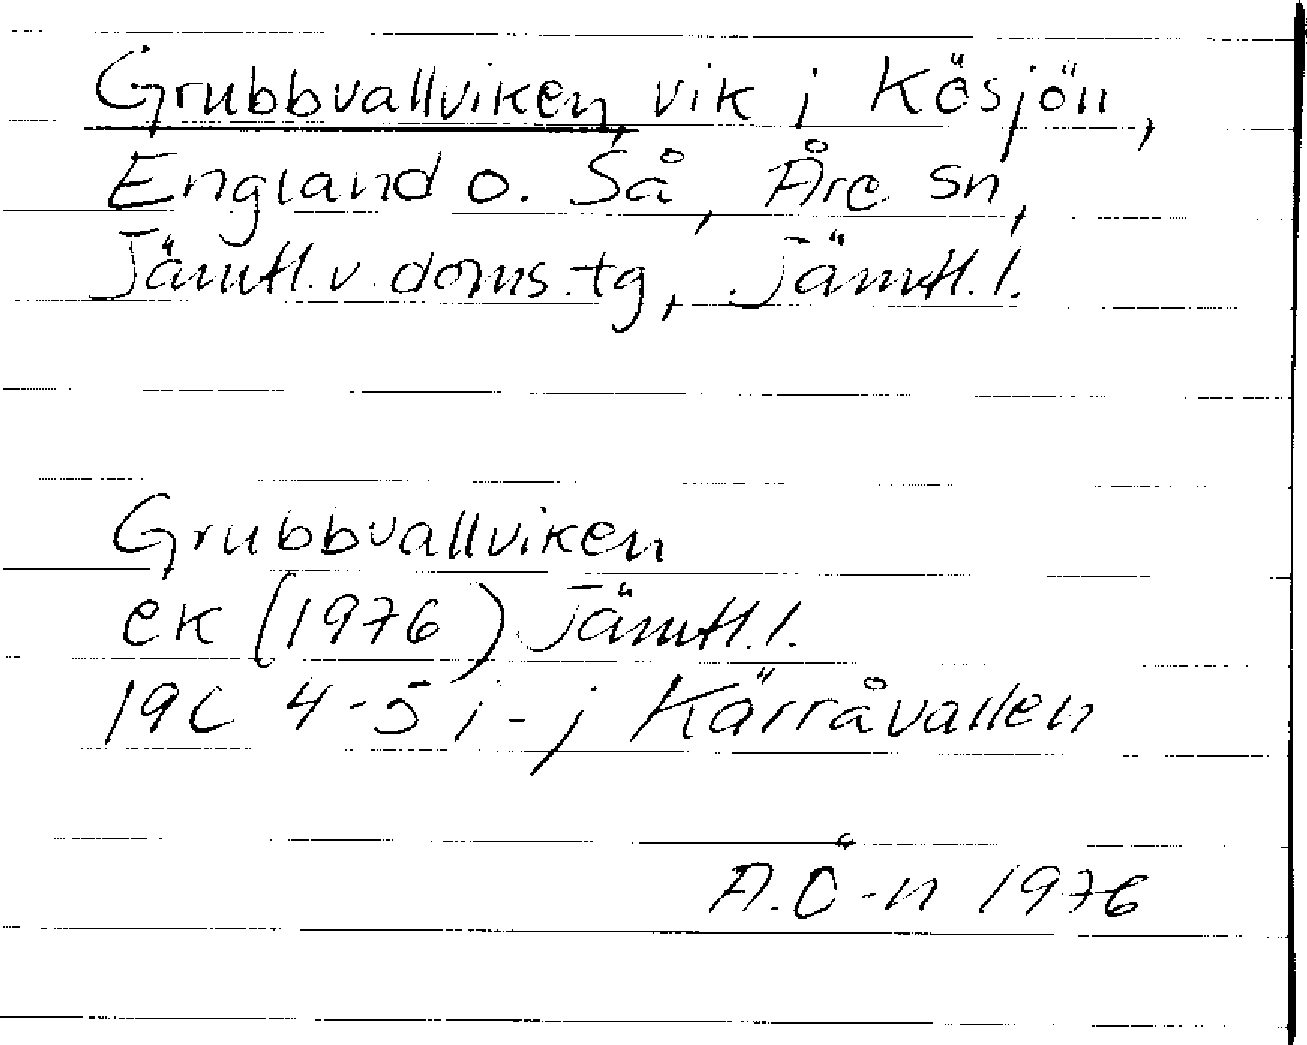 Grubbvallviken, vik i Kösjön,
England o. Så, Åre sn,
Jämtl. v. doms. tg, Jämtl. l.
Grubbvallviken
ek (1976) Jämtl. l.
19C 4-5 i-j Kärråvallen
A.Ö-n 1976